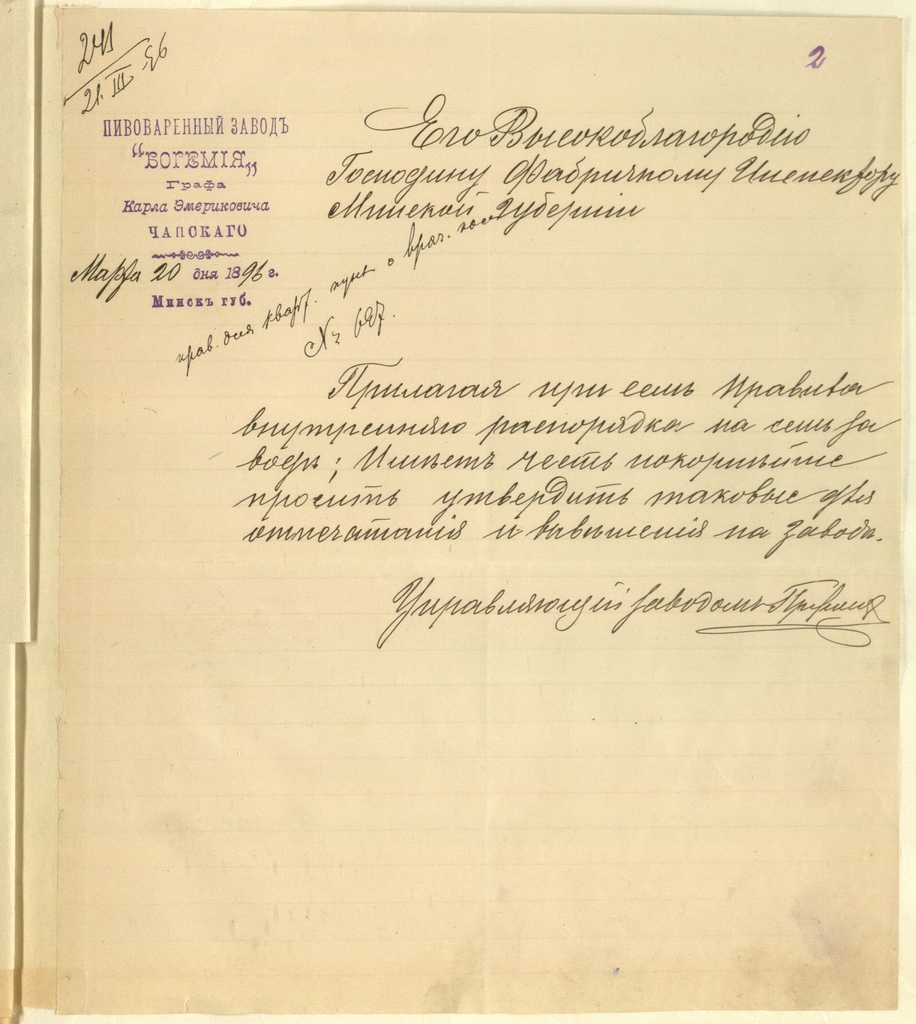 241
21.III 96
2
ПИВОВАРЕННЫЙ ЗАВОДЪ
"БОГЕМІЯ„
Графа
Карла Эмериковича
ЧАПСКАГО
Марта 20 дня 1896 г.
Минскъ губ.
Его Высокоблагородію
Господину Фабричному Инспектору
Минской Губерніи
прав. для кварт. пунк. о врач.
№ 687.
Прилагая при семъ Правила
внутренняго распорядка на семъ за
водѣ; Имѣетъ честь покорнѣйше
просить утвердить таковые для
отпечатанія и вывѣшенія на заводѣ.
Управляющій заводомъ